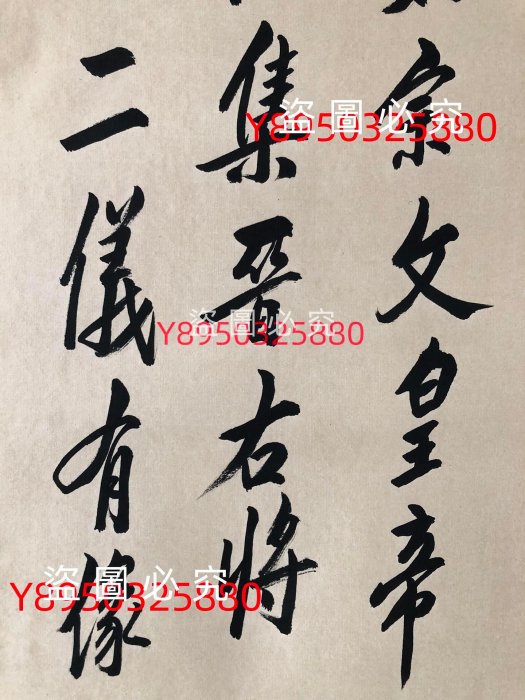 宗文皇帝
集晋右將
二儀有像
盜圖必究
Y8950325880
盜圖必究
Y8950325880
盜圖必究
Y8950325880